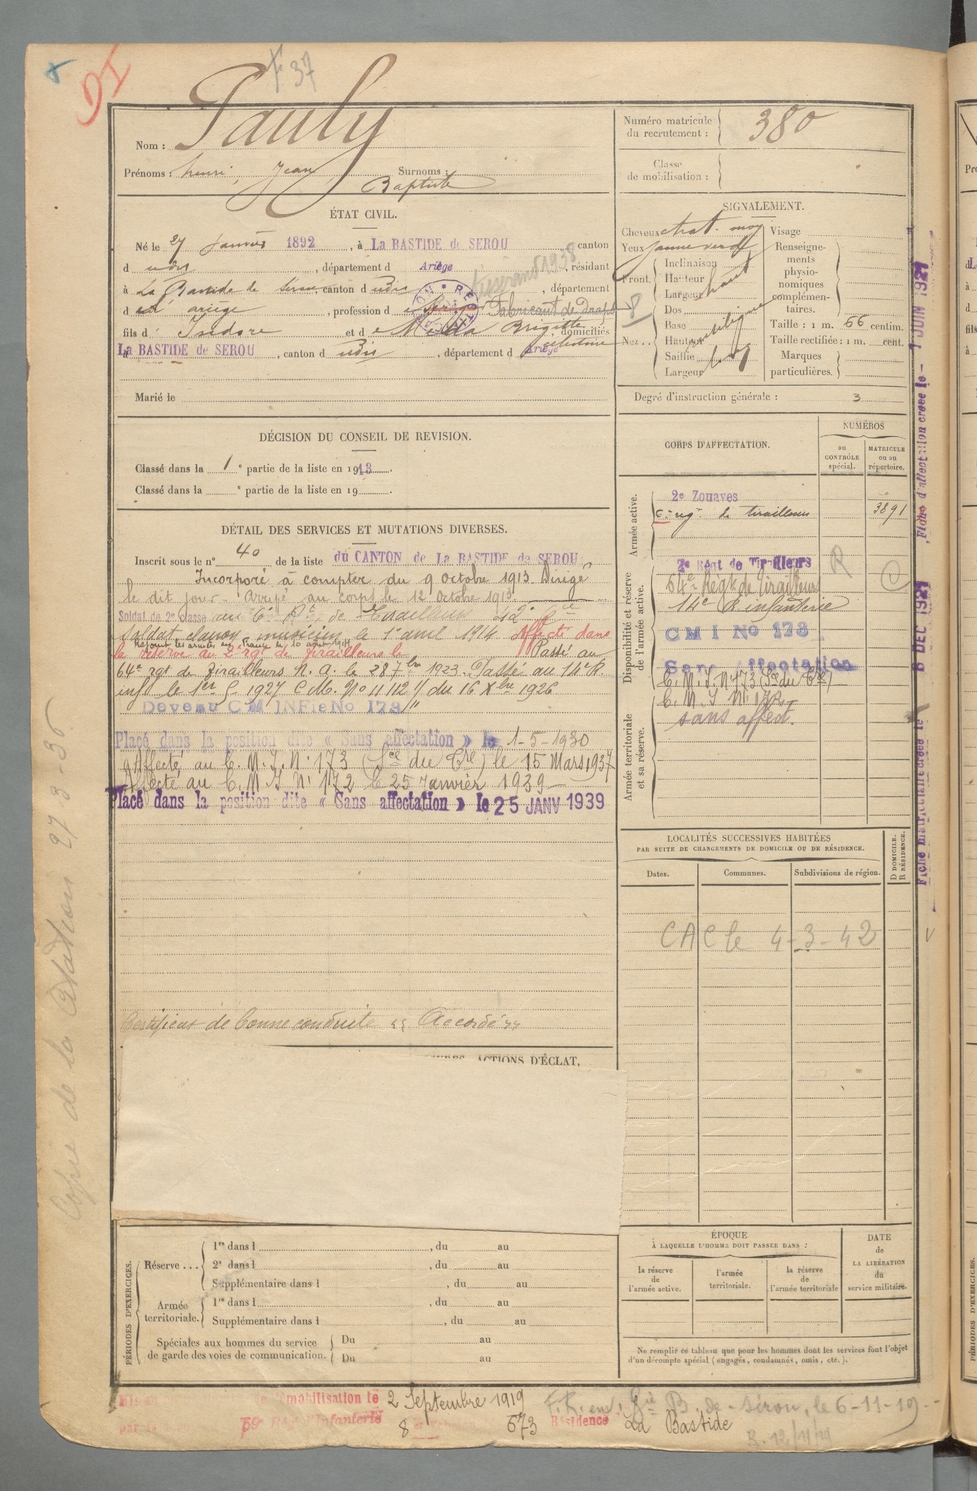 DI
F 37
Nom : Pauly
Prénoms : henri, Jean Surnoms :
Baptiste
ÉTAT CIVIL.
Né le 27 Janvier 1892, à La BASTIDE de SEROU, canton
d udis, département d Ariège, résidant
à La Bastide de Serou, canton d udis, département
d ariège, profession d Fabricant de draps
fils d Isidore et d Brigitte domiciliés
La BASTIDE de SEROU, canton d udis, département d Ariège
Marié le
DÉCISION DU CONSEIL DE REVISION.
Classé dans la 1e partie de la liste en 1913.
Classé dans la e partie de la liste en 19
DÉTAIL DES SERVICES ET MUTATIONS DIVERSES.
Inscrit sous le no 40 de la liste du CANTON de La BASTIDE de SEROU
Incorporé à compter du 9 octobre 1913. Dirigé
le dit jour. Arrivé au corps le 12 octobre 1913
Soldat de 2e classe au
Soldat clairon musicien le 1er avril 1914. Affecté dans
la réserve au 2e rgt de Tirailleurs le Passé au
64e rgt de Tirailleurs N. A. le 28 7bre 1923. Passé au 14e R.
inf le 1er J. 1927 C.M. No 11112 / du 16 Xbre 1926
Devenu CM INFie No 173
Placé dans la position dite « Sans affectation » le 1-5-1930
Affecté au C. M. I. No 173 (Sce du Tre) le 15 Mars 1937
Affecté au C. M. I. No 172 le 25 Janvier 1939
Placé dans la position dite « Sans affectation » le 25 JANV 1939
Certificat de bonne conduite "Accordé"
ACTIONS D'ÉCLAT,
PÉRIODES D'EXERCICES.
Réserve ... 1re dans l , du au
2e dans l , du au
Supplémentaire dans l , du au
Armée territoriale. 1re dans l , du au
Supplémentaire dans l , du au
Spéciales aux hommes du service Du au
de garde des voies de communication. Du au
Numéro matricule du recrutement : 380
Classe de mobilisation :
SIGNALEMENT.
Cheveux chat. moy Visage
Yeux jaune verd Renseigne-
ments
physio-
nomiques
complémen-
taires.
Front. Inclinaison
Hauteur haut
Largeur
Nez. Dos
Base
Hauteur
Saillie
Largeur
Taille : 1 m. 66 centim.
Taille rectifiée : 1 m. cent.
Marques
particulières.
Degré d'instruction générale : 3
CORPS D'AFFECTATION.
NUMÉROS
AU CONTRÔLE spécial.
MATRICULE OU AU répertoire.
Armée active.
2e Zouaves
6e rgt de tirailleurs 3891
Disponibilité et réserve de l'armée active.
2e Régt de Tirailleurs R C
64e Régt de Tirailleurs
14e R infanterie
CMI No 173
Sans affectation
C. M. I. No 173 (Sce du Tre)
C. M. I. No 172
sans affect.
Armée territoriale et sa réserve.
LOCALITÉS SUCCESSIVES HABITÉES
PAR SUITE DE CHANGEMENTS DE DOMICILE OU DE RÉSIDENCE.
Dates. Communes. Subdivisions de région. D DOMICILE. R RÉSIDENCE.
CAC le 4-3-42
ÉPOQUE
À LAQUELLE L'HOMME DOIT PASSER DANS :
la réserve de l'armée active.
l'armée territoriale.
la réserve de l'armée territoriale
DATE de LA LIBÉRATION du service militaire.
Ne remplir ce tableau que pour les hommes dont les services font l'objet
d'un décompte spécial (engagés, condamnés, omis, etc.).
Fiche d'affectation créée le 1 JUIN 1927
Fiche matriculaire créée le 8 DEC 1927
Copie de la Citation 27-3-36
démobilisation le 2 Septembre 1919
59e d'Infanterie
8 673 Résidence La Bastide
de Sérou, le 6-11-19